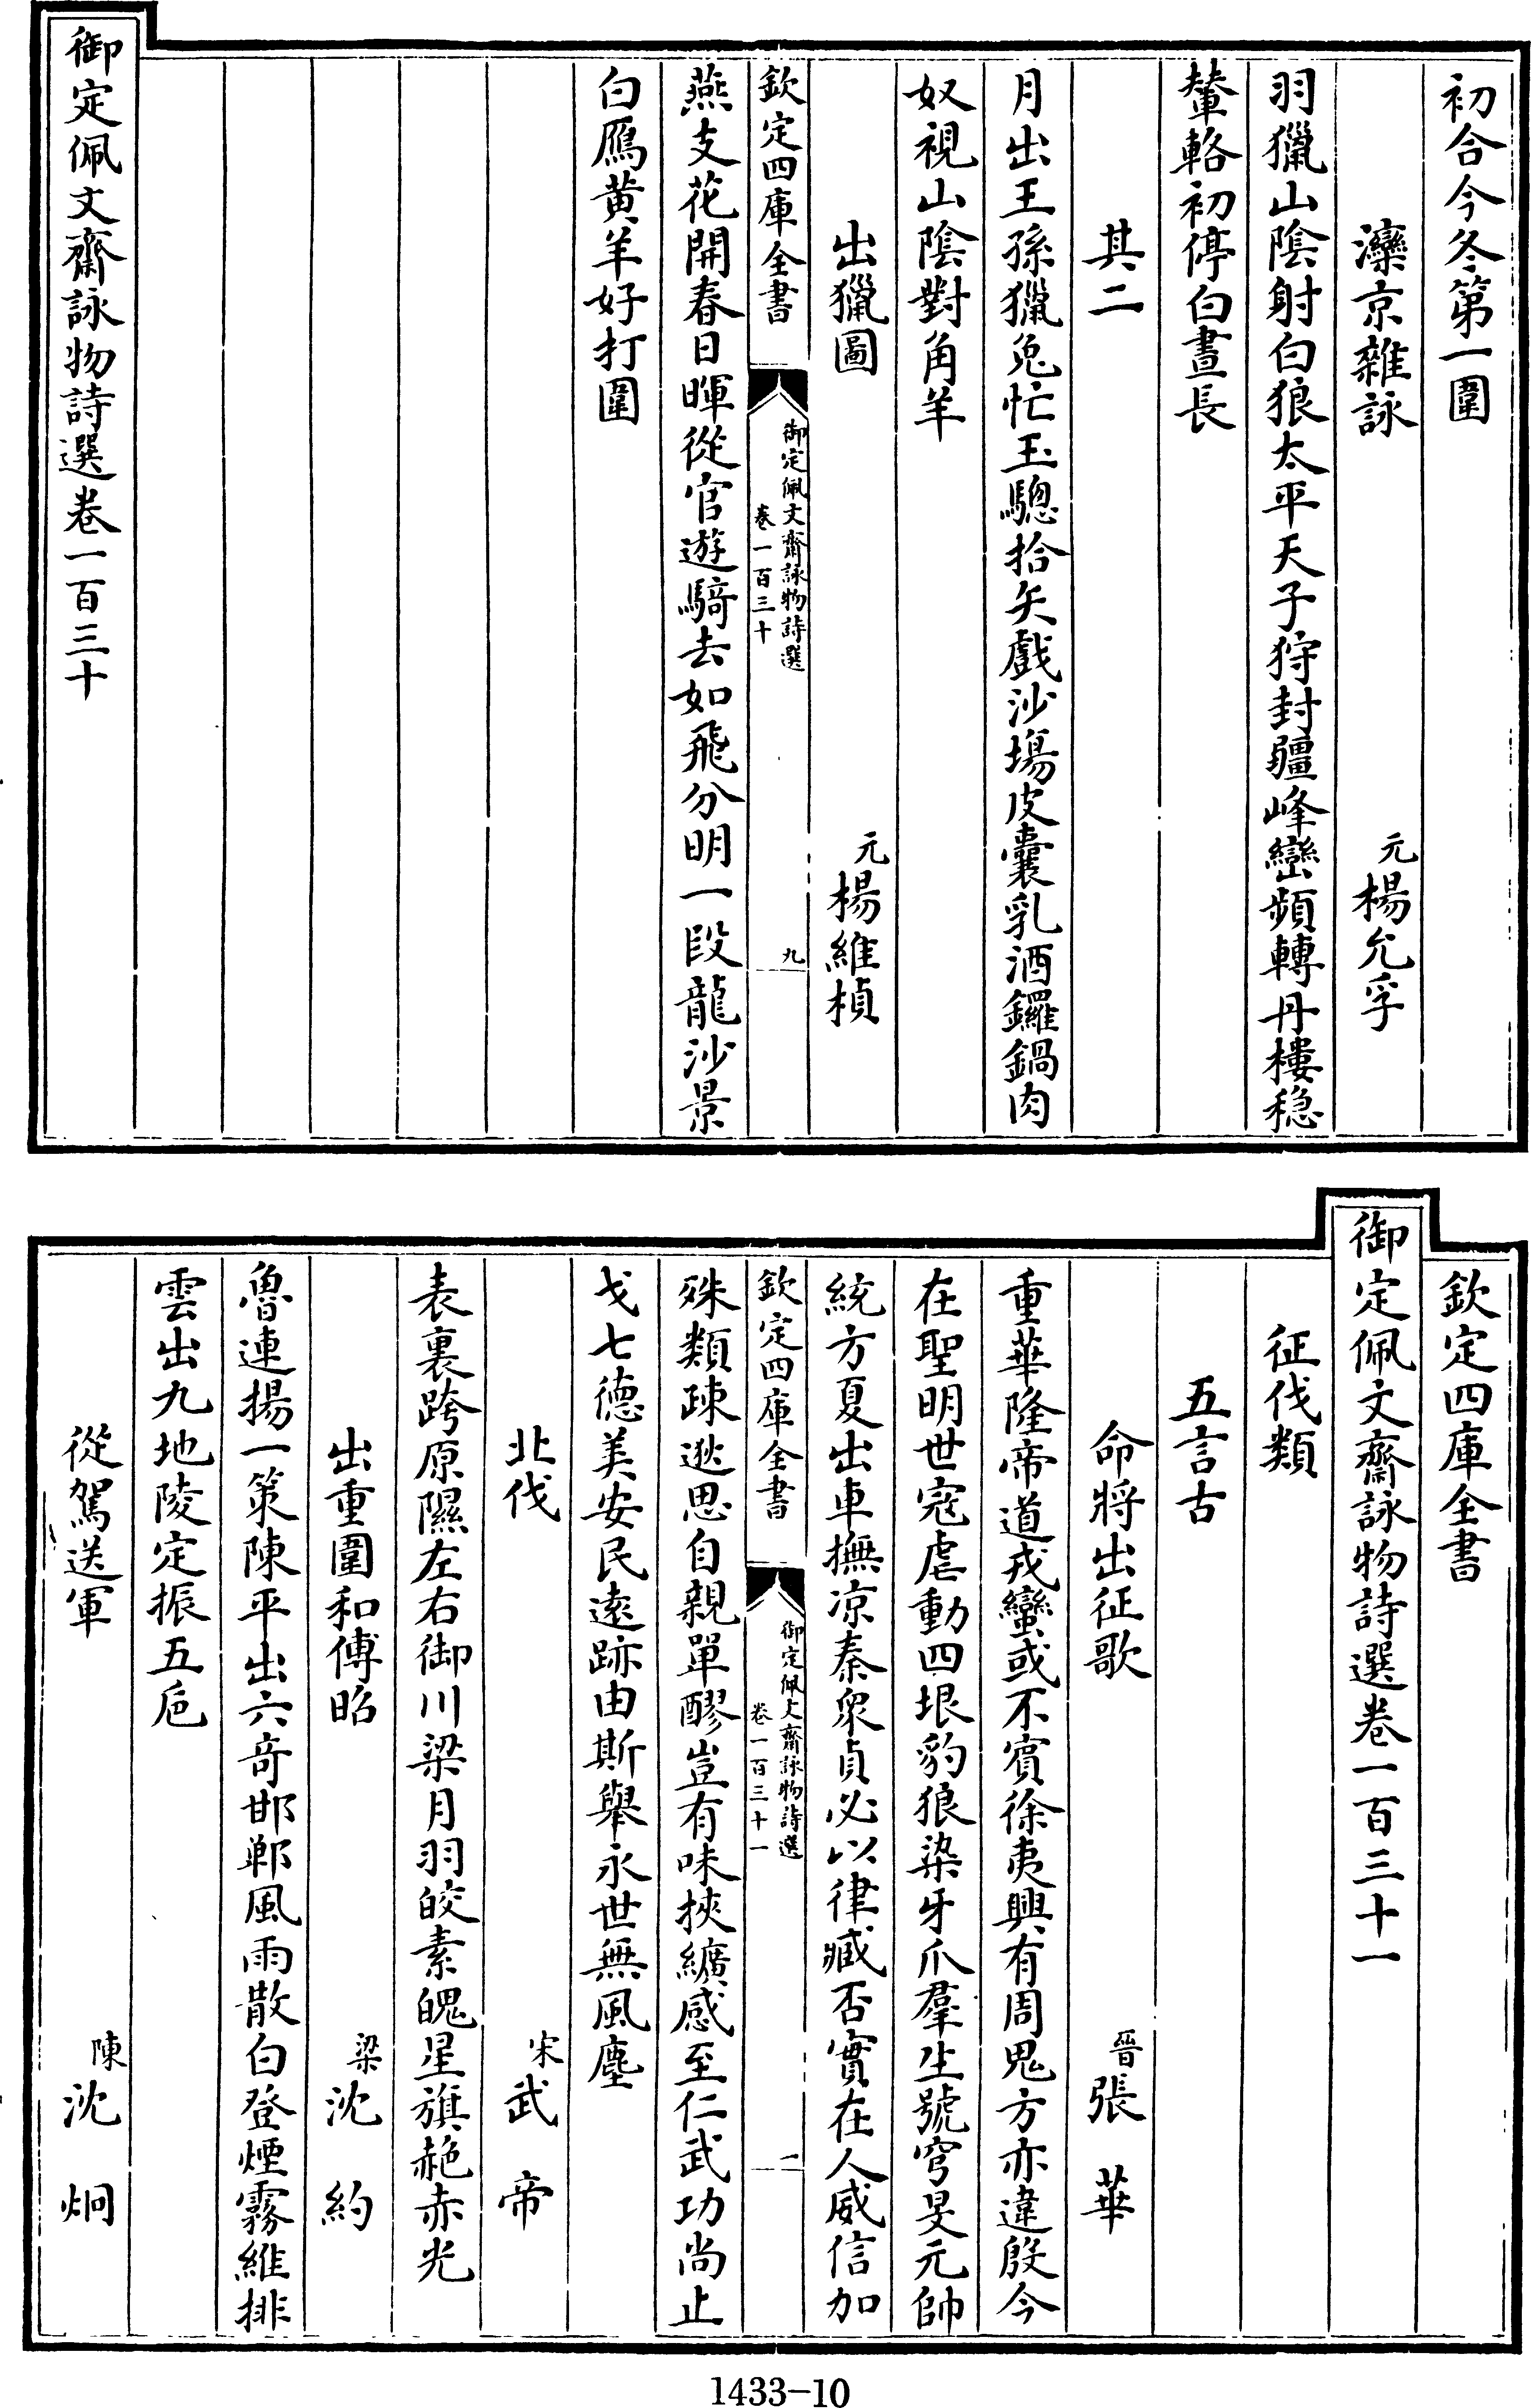 初合今冬第一圍
灤京雜詠　元楊允孚
羽獵山陰射白狼太平天子狩封疆峰巒頻轉丹樓穏
輦輅初停白晝長
其二
月出王孫獵兔忙玉驄拾矢戲沙塲皮囊乳酒鑼鍋肉
奴視山陰對角羊
出獵圖　元楊維楨
欽定四庫全書　御定佩文齋詠物詩選　卷一百三十　九
燕支花開春日暉從官遊騎去如飛分明一段龍沙景
白鴈黄羊好打圍
御定佩文齋詠物詩選卷一百三十
欽定四庫全書
御定佩文齋詠物詩選卷一百三十一
征伐類
五言古
命將出征歌　晉張華
重華隆帝道戎蠻或不賓徐夷興有周鬼方亦違殷今
在聖明世寇虐動四垠豹狼染牙爪羣生號穹旻元帥
統方夏出車撫凉秦衆貞必以律臧否實在人威信加
欽定四庫全書　御定佩文齋詠物詩選　卷一百三十一　一
殊類疎逖思自親單醪豈有味挾纊感至仁武功尚止
戈七德美安民遠跡由斯舉永世無風塵
北伐　宋武帝
表裏跨原隰左右御川梁月羽皎素魄星旗赩赤光
出重圍和傅昭　梁沈約
魯連揚一策陳平出六竒邯鄲風雨散白登煙霧維排
雲出九地陵定振五巵
從駕送軍　陳沈炯
1433-10